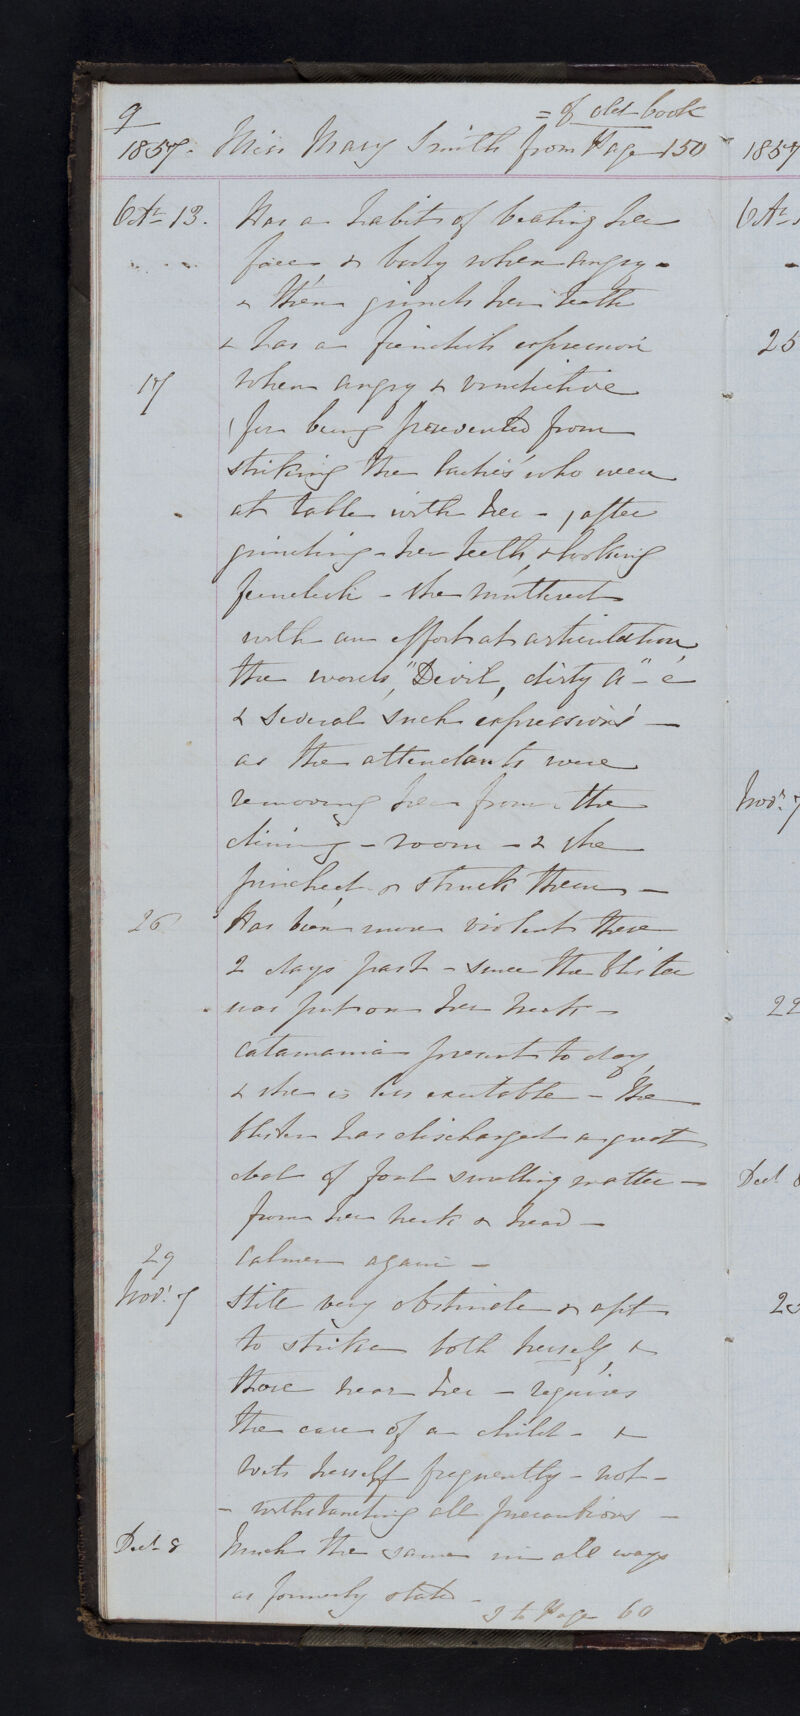 9
= of old book
1857. Miss Mary Smith from Page 150
Octr 13. Has a habit of beating her
face & body when angry -
& then grinds her teeth
& has a fiendish expression
17 when angry & vindictive
for being prevented from
striking the ladies who were
at table with her - , after
grinding her teeth & looking
fiendish - she muttered
with an effort at articulation
the words, "Devil, dirty a" - &
& several such expressions -
as the attendants were
removing her from the
dining - room - & she
pinched & struck them -
26 Has been more violent these
2 days past - since the blister
was put on her neck -
Catamania present to day,
& she is less excitable - The
blister has discharged a great
deal of foul smelling matter -
from her neck & head -
29 Calmer again -
Novr 7 Still very obstinate & apt
to strike both herself, &
those near her - requires
the care of a child - &
wets herself frequently - not -
- withstanding all precautions -
Decr 8 Much the same in all ways
as formerly stated -
to Page 60
1857
Octr
25
Novr 7
22
Decr 8